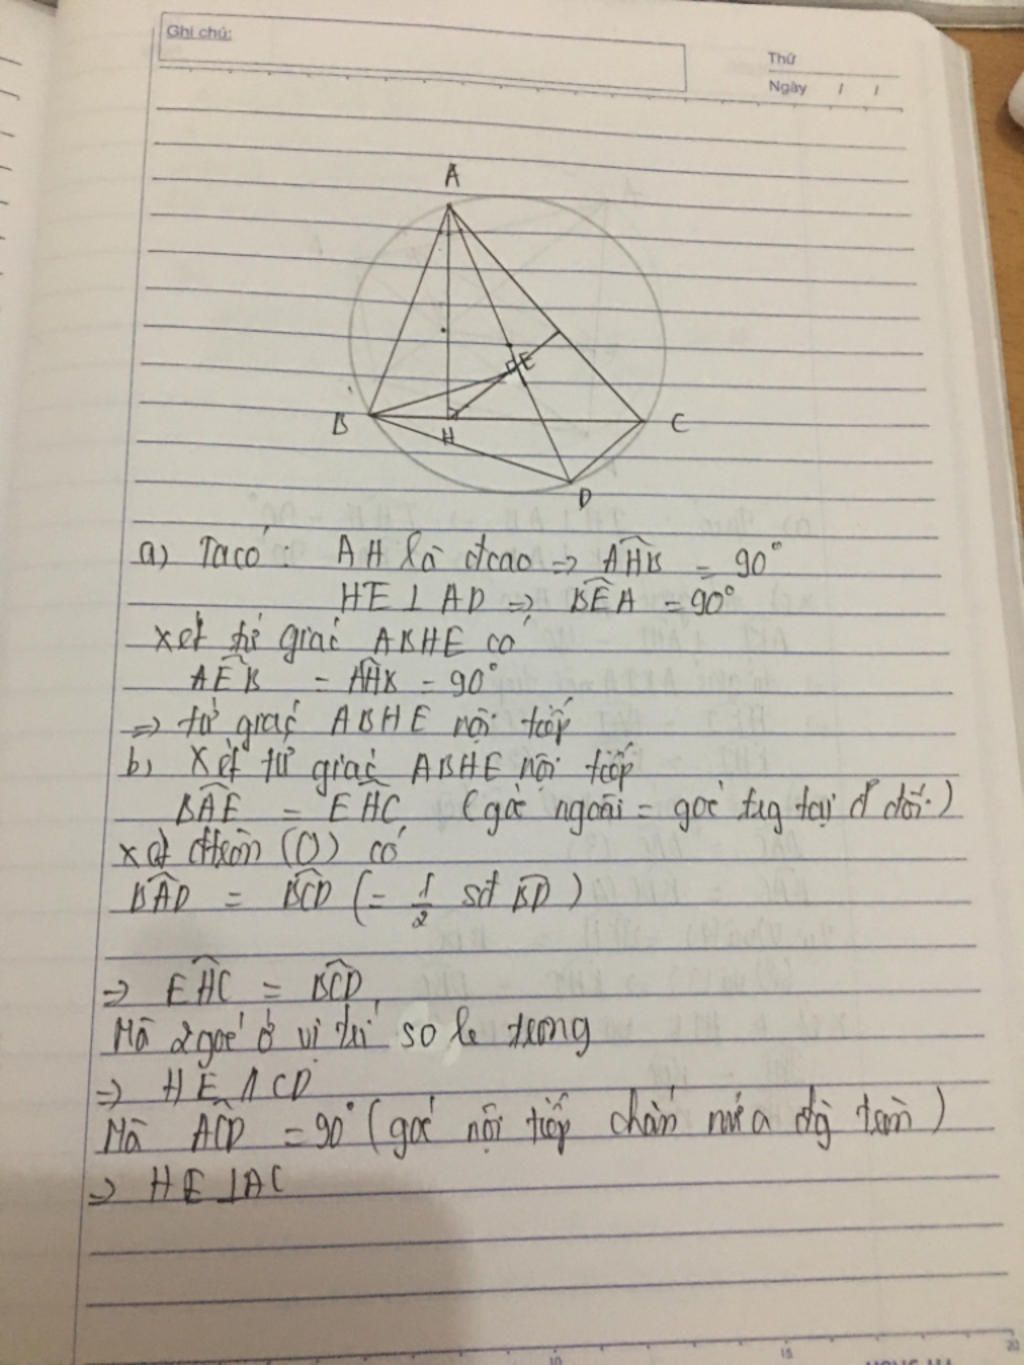 Ghi chú:
Thứ
Ngày / /
A
E
B
H
C
D
a) Ta có: AH là đcao => AHB = 90°
HE ⊥ AD => BEA = 90°
xét tứ giác ABHE có
AEB = AHB = 90°
=> tứ giác ABHE nội tiếp
b, Xét tứ giác ABHE nội tiếp
BAE = EHC (góc ngoài = góc trg tại đ đối.)
xét đtròn (O) có
BAD = BCD (= 1/2 sđ BD)
=> EHC = BCD
Mà 2 góc ở vị trí so le trong
=> HE // CD
Mà ACD = 90° (góc nội tiếp chắn nửa đg tròn)
=> HE ⊥ AC
10
15
20